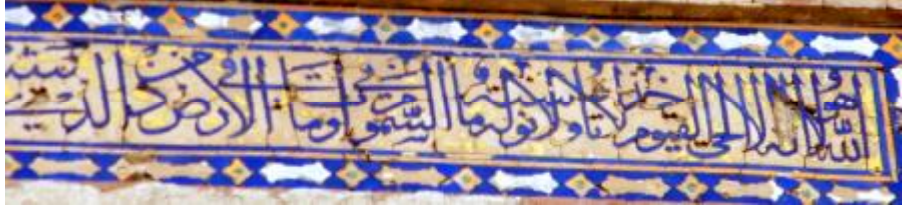 الله لا اله الا هو الحي القيوم لا تاخذه سنة ولا نوم له ما في السموت وما في الارض